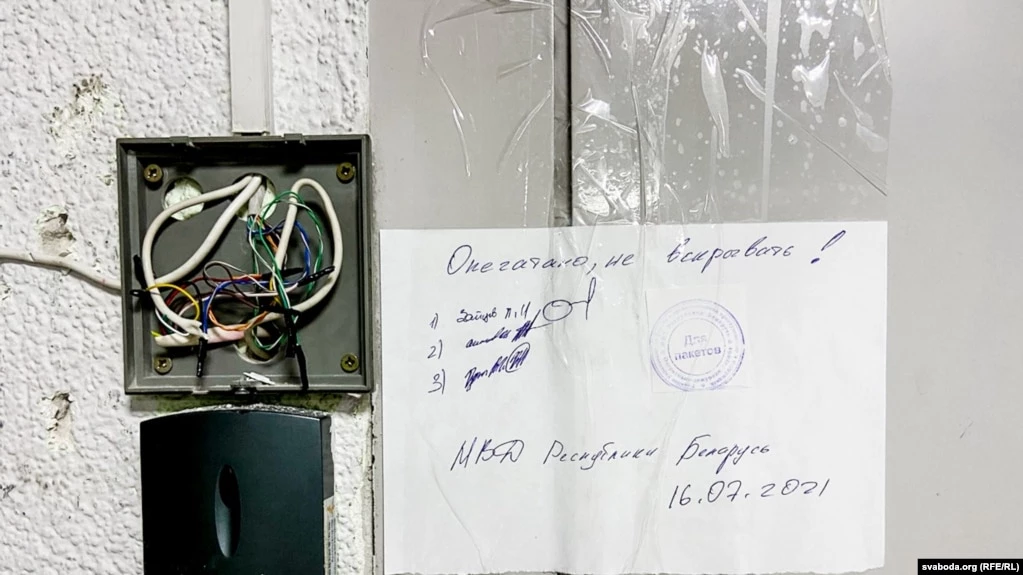 Опечатано, не вскрывать!
1) Зайцев П.Н
2)
3)
Для
пакетов
МВД Республики Беларусь
16.07.2021
svaboda.org (RFE/RL)